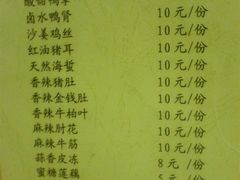 酸甜鸭掌
卤水鸭肾 10 元/份
沙姜鸡丝 10 元/份
红油猪耳 10 元/份
天然海蜇 10 元/份
香辣猪肚 10 元/份
香辣金钱肚 10 元/份
香辣牛柏叶 10 元/份
麻辣肘花 10 元/份
麻辣牛筋 10 元/份
蒜香皮冻 8 元/份
蜜糖莲藕 5 元/份